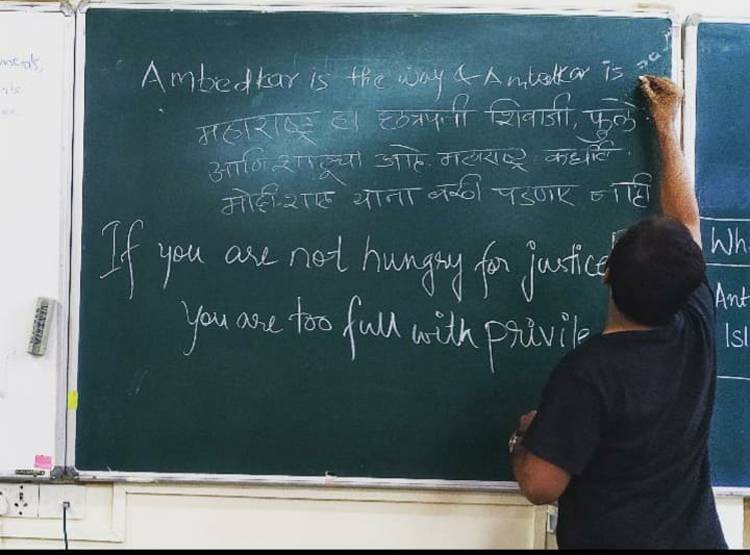 Ambedkar is the way & Ambedkar is
महाराष्ट्र हा छत्रपती शिवाजी, फुले
आणि शाहूंचा आहे. महाराष्ट्र कधीही
मोदी-शाह यांना बळी पडणार नाही
If you are not hungry for justice
You are too full with privile
Wh
Ant
Isl